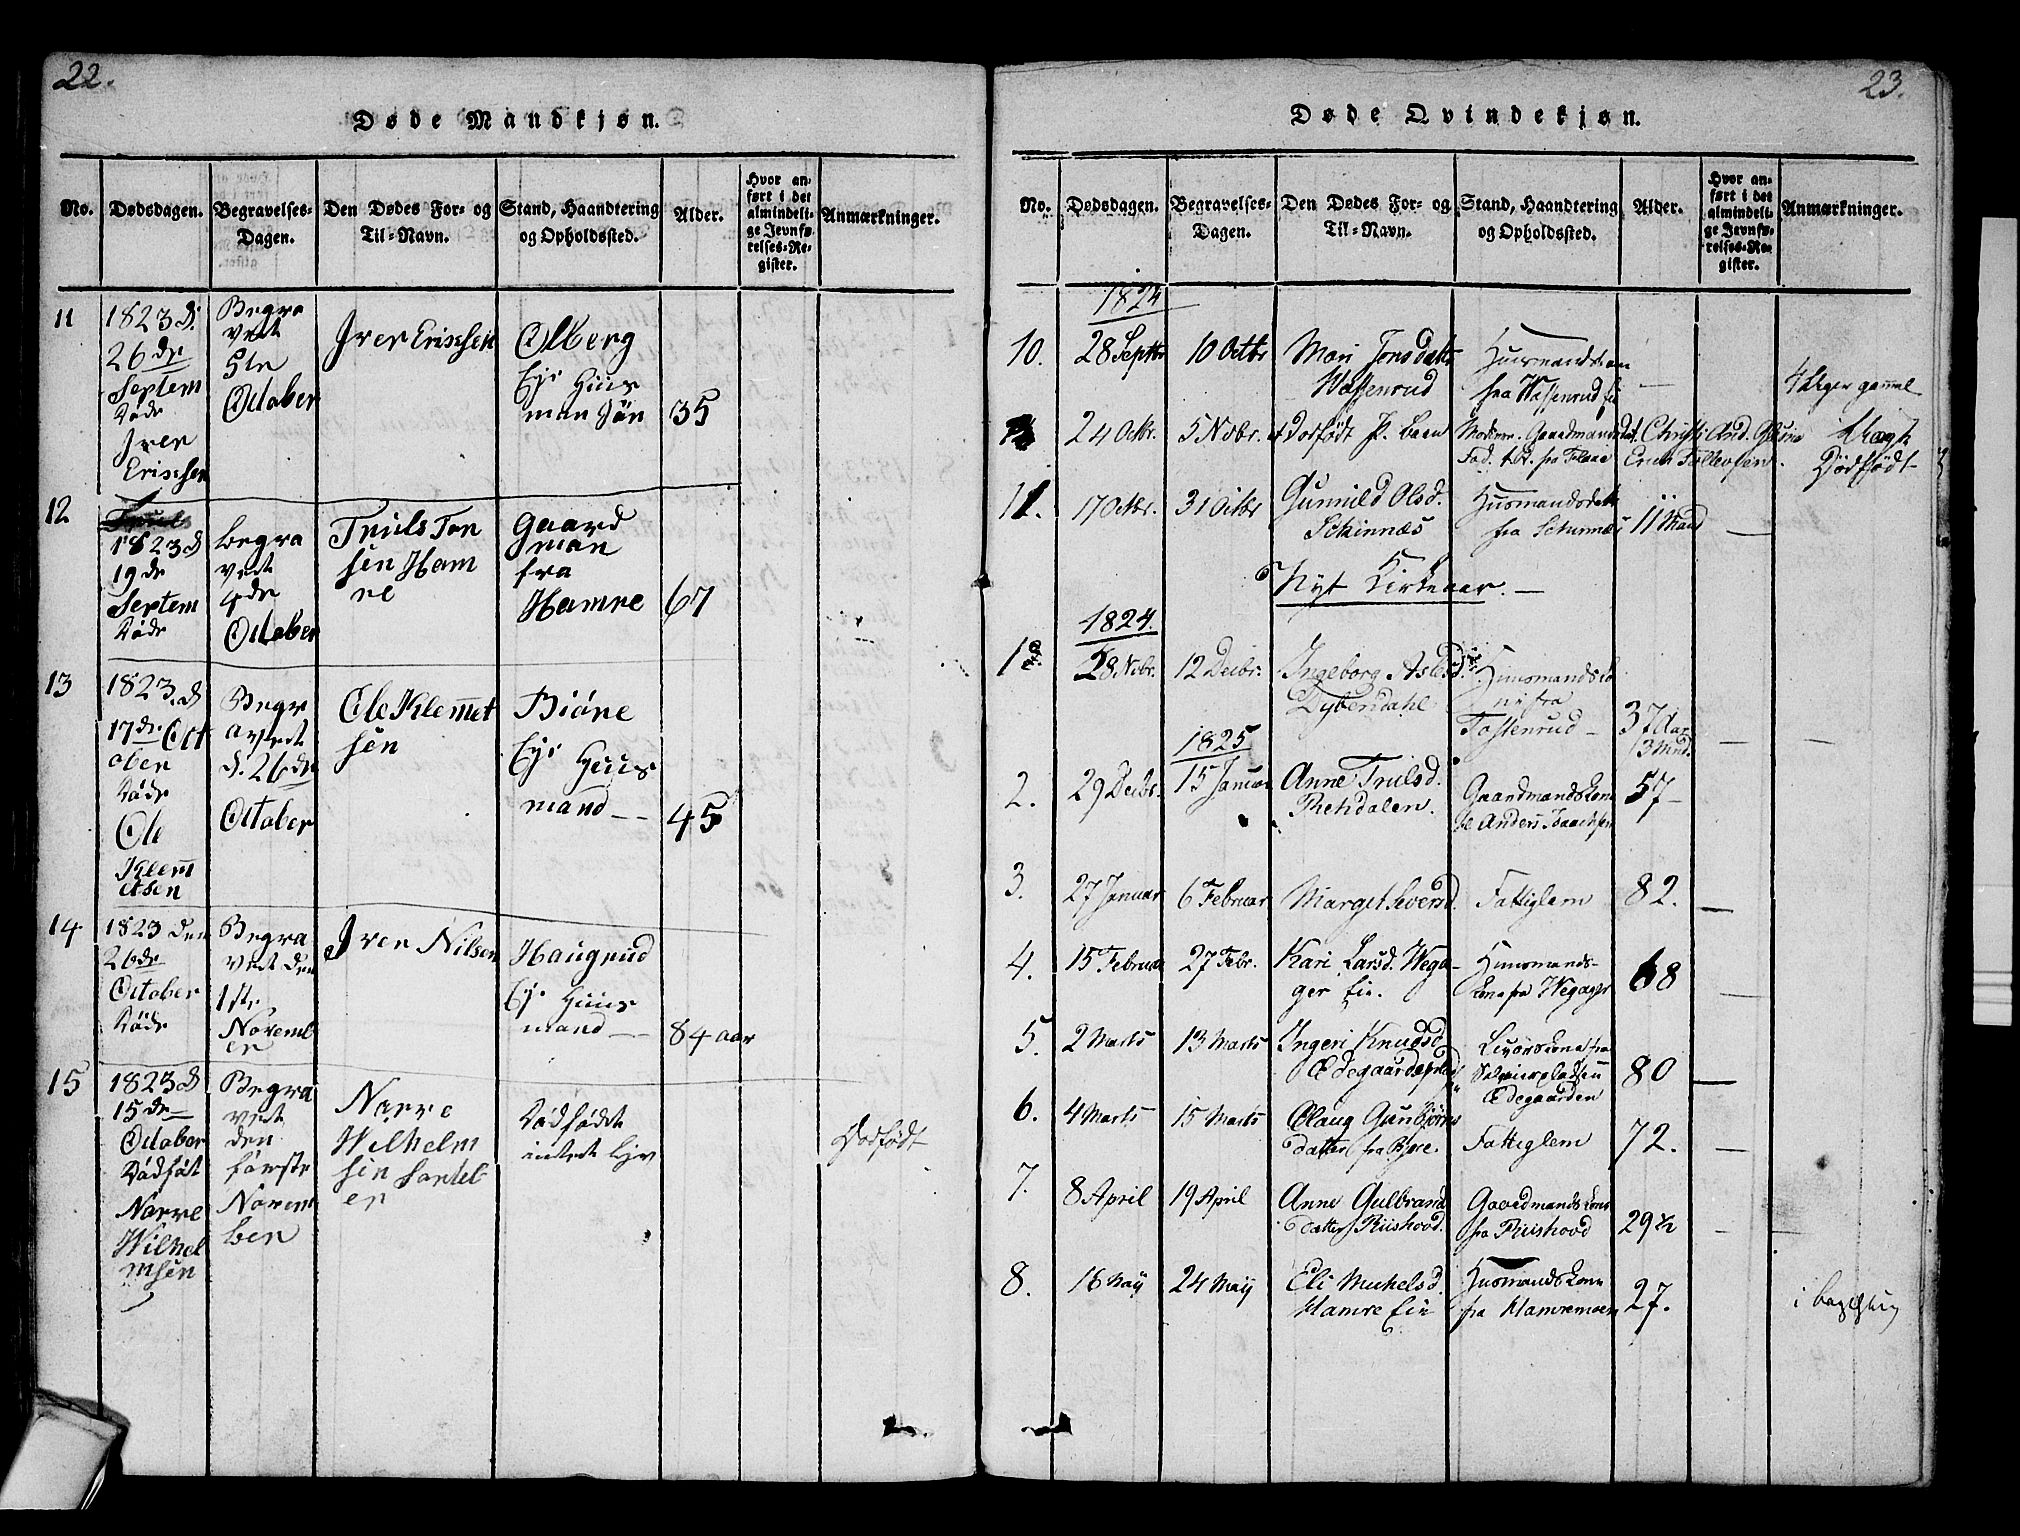 22.
Døde Mandkjøn.
No.
Dødsdagen.
Begravelses-
Dagen.
Den Dødes For- og
Til-Navn.
Stand, Haandtering
og Opholdssted.
Alder.
Hvor an-
ført i det
almindeli-
ge Jevnfø-
relses-Re-
gister.
Anmærkninger.
11
1823 d.
26de
Septem
døde
Iver
Erichsen
Begra
vedt
5te
October
Iver Erichsen
Olberg
Eje Huus
man
35
12
1823 d
19de
Septem
døde
begra
vedt
4de
October
Truls Ton
sen Ham
re
Gaard
man
fra
Hamre
67
13
1823. d
17de Oct
ober
døde
Ole
Klem
etsen
Begr
avedt
d. 26de
October
Ole Klemmet
sen
Biöre
Eje Huus
mand
45
14
1823 den
26de
October
døde
Begra
vedt den
1ste
Novemb
er
Iver Nilsen
Haugrud
Eje Huus
mand
84 aar
15
1823 d
15de
October
dødføt
Narve
Wilhel
msen
Begra
vedt
den
første
Novem
ber
Narve
Wilhelm
sen
er
dødfødt
intedt liv
Dødfødt
23.
Døde Qvindekjøn.
No.
Dødsdagen.
Begravelses-
Dagen.
Den Dødes For- og
Til-Navn.
Stand, Haandtering
og Opholdssted.
Alder.
Hvor an-
ført i det
almindeli-
ge Jevnfø-
relses-Re-
gister.
Anmærkninger.
1824
10.
28 Septbr
10 Octbr
Mari Jonsdatt
Wassenrud
fra Wassenrud Eie
4 Uger gammel
24 Octbr.
5 Novbr.
et dødfødt P. barn
fra Flaae
Erich Tollevsen
Dödfödt
11.
17 Octbr.
31 Octbr
Gunnild Olsd.
Schinnæs
Husmandsdatt
fra Schinnæs
11 Maand
Nyt Kirkeaar.
1824.
1
28 Novbr.
12 Decbr.
Ingeborg Aslesd.
Dyberdahl
Huusmandsko
ne fra
Tostenrud
37 Aar
3 Mnd.
1825
2.
29 Decbr.
15 Januar
Anne Trulsd.
Rehdalen.
Gaardmandskone
Anders Isaachsen
57
3.
27 Januar
6 Februar
Marget Iversd.
Fattiglem
82.
4.
15 Februar
27 Febr.
Kari Larsd. Wega-
ger Eie.
Huusmands-
kone fra Wegager
68
5.
2 Marts
13 Marts
Ingeri Knudsd.
fra
Ødegaarden
80
6.
4 Marts
15 Marts
Olaug Gunbjörns
datter fra Bjøre.
Fattiglem
72.
7.
8 April
19 April
Anne Gulbrand
datter Riishovd.
Gaardmandskone
fra Riishovd
29 ½
8.
16 Maij
24 Maij
Eli Michelsd.
Hamre Eie
Husmandskone
fra Hamremoen
27.
i barselseng